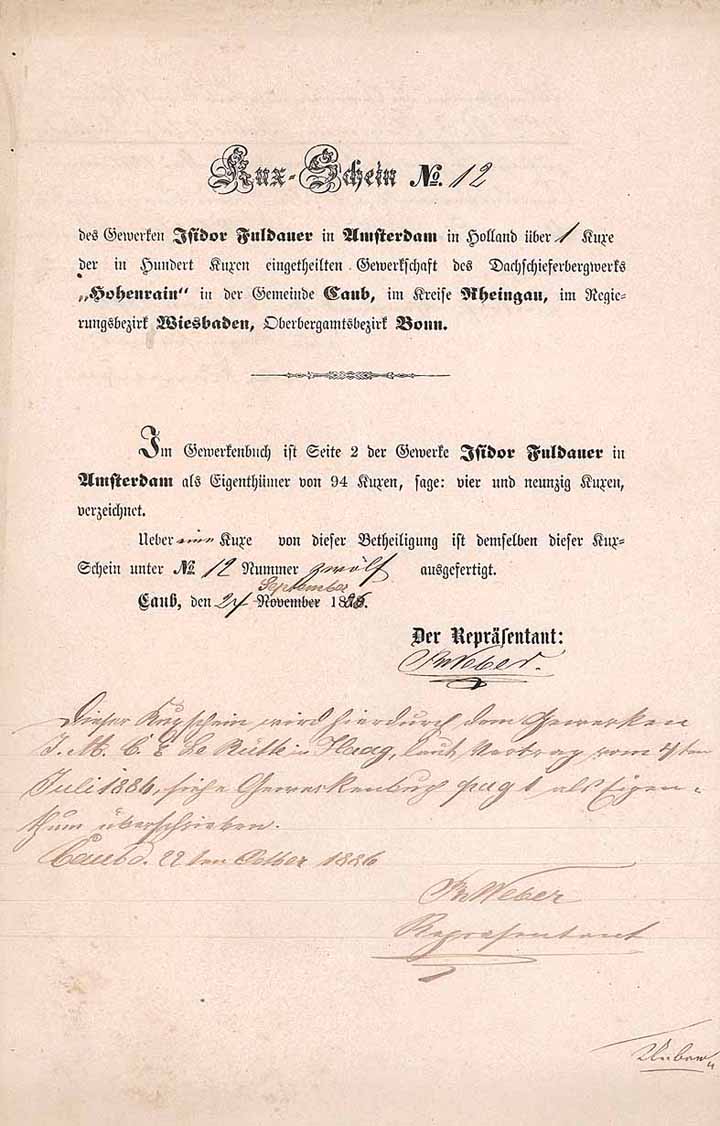 Kux-Schein No. 12
des Gewerken Isidor Fuldauer in Amsterdam in Holland über 1 Kuxe
der in Hundert Kuxen eingetheilten Gewerkschaft des Dachschieferbergwerks
„Hohenrain“ in der Gemeinde Caub, im Kreise Rheingau, im Regie-
rungsbezirk Wiesbaden, Oberbergamtsbezirk Bonn.
Im Gewerkenbuch ist Seite 2 der Gewerke Isidor Fuldauer in
Amsterdam als Eigenthümer von 94 Kuxen, sage: vier und neunzig Kuxen,
verzeichnet.
Ueber eine Kuxe von dieser Betheiligung ist demselben dieser Kux-
Schein unter No 12 Nummer zwölf ausgefertigt.
September
Caub, den November 1886.
Der Repräsentant:
Weber.
Dieser Kuxschein wird hierdurch dem Gewerken
J. M. C. E. Le Rütte in Haag, laut Vertrag vom
Juli 1886, siehe Gewerkenbuch pag 1 als Eigen-
thum überschrieben.
Caub d. 22ten October 1886
Weber
Repräsentant